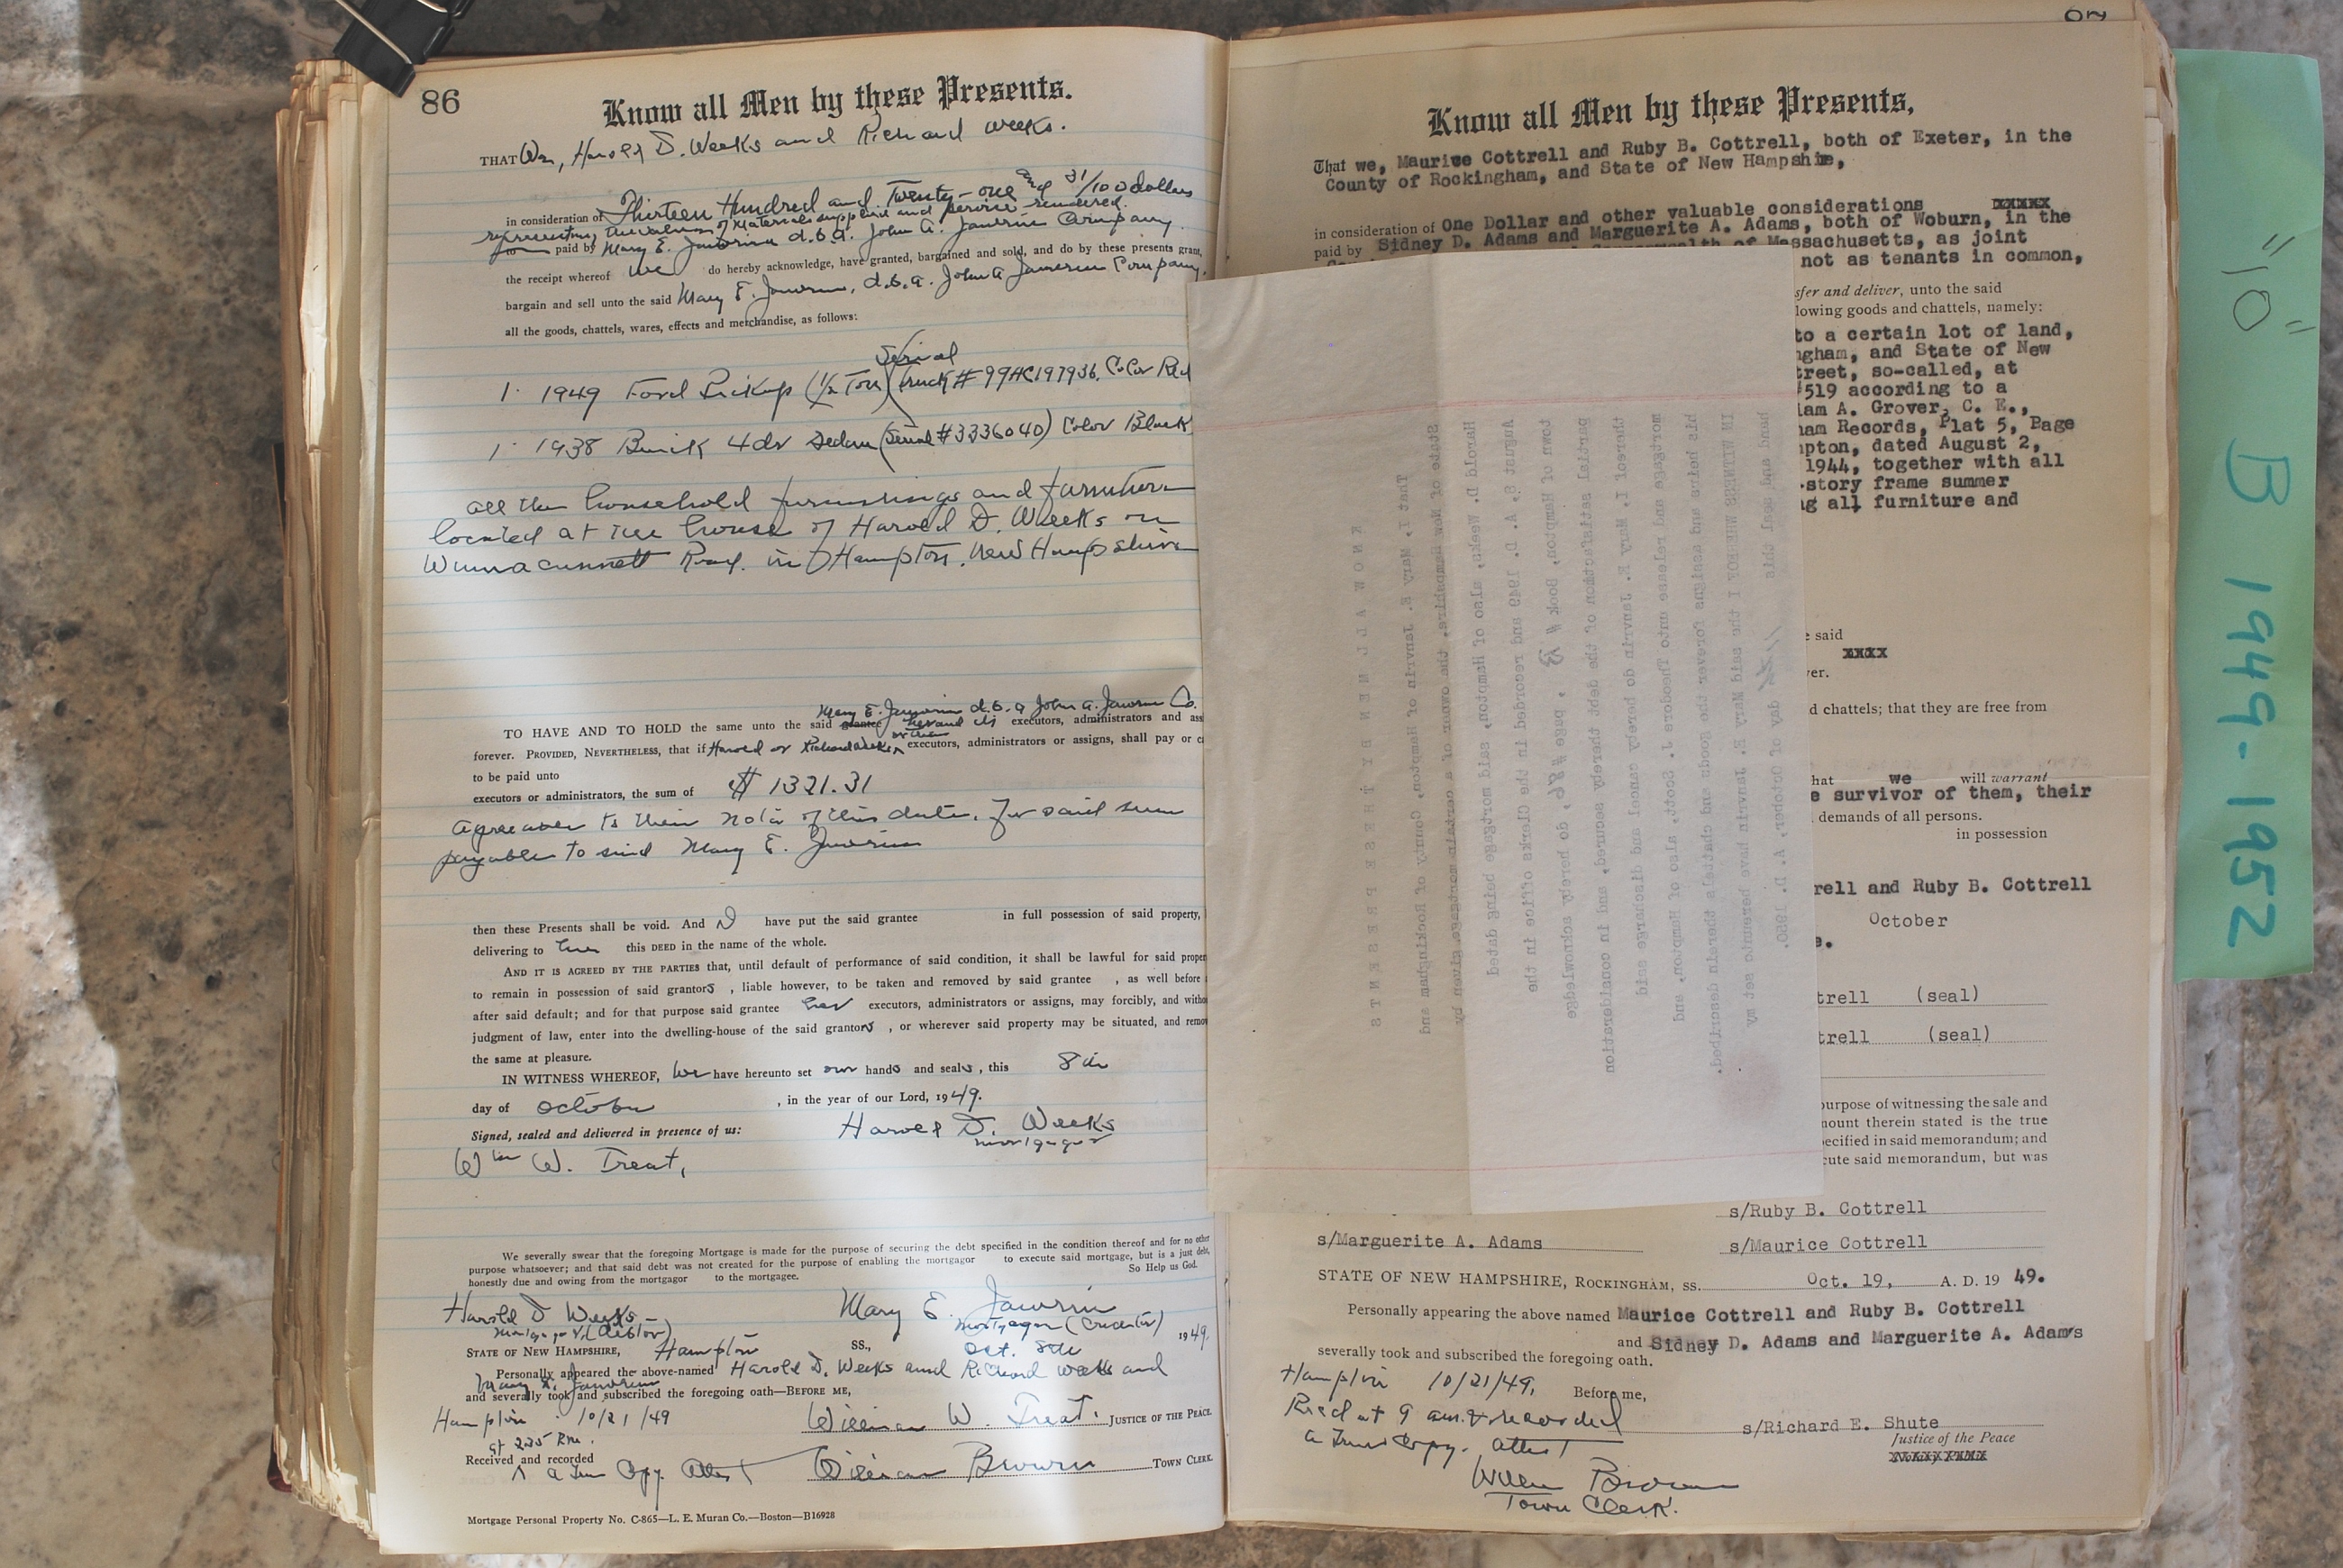 86
Know all Men by these Presents.
THAT We, Harold D. Weeks and Richard Weeks.
in consideration of Thirteen Hundred and Twenty-one and 31/100 dollars
representing the value of materials supplied and service rendered.
paid by Mary E. Janvrin d.b.a. John A. Janvrin Company
the receipt whereof we do hereby acknowledge, have granted, bargained and sold, and do by these presents grant,
bargain and sell unto the said Mary E. Janvrin, d.b.a. John A Janvrin Company,
all the goods, chattels, wares, effects and merchandise, as follows:
Serial
1. 1949 Ford Pickup (1/2 Ton) (truck # 99HC197936, Color Red
1. 1938 Buick 4dr Sedan (Serial #3336040) Color Black
all the household furnishings and furniture
located at the house of Harold D. Weeks on
Winnacunnett Road. in Hampton, New Hampshire
Mary E. Janvrin d.b.a John A. Janvrin Co.
TO HAVE AND TO HOLD the same unto the said grantee her and its executors, administrators and ass
forever. PROVIDED, NEVERTHELESS, that if Harold or Richard Weeks or their executors, administrators or assigns, shall pay or c
to be paid unto
executors or administrators, the sum of $ 1321.31
agreeable to their note of this date, for said sum
payable to said Mary E. Janvrin
then these Presents shall be void. And have put the said grantee in full possession of said property,
delivering to her this DEED in the name of the whole.
AND IT IS AGREED BY THE PARTIES that, until default of performance of said condition, it shall be lawful for said proper
to remain in possession of said grantors , liable however, to be taken and removed by said grantee , as well before
after said default; and for that purpose said grantee her executors, administrators or assigns, may forcibly, and witho
judgment of law, enter into the dwelling-house of the said grantors , or wherever said property may be situated, and remov
the same at pleasure.
IN WITNESS WHEREOF, we have hereunto set our hands and seals, this 8th
day of October , in the year of our Lord, 1949.
Signed, sealed and delivered in presence of us: Harold D. Weeks
mortgagor
Wm W. Treat,
We severally swear that the foregoing Mortgage is made for the purpose of securing the debt specified in the condition thereof and for no other
purpose whatsoever; and that said debt was not created for the purpose of enabling the mortgagor to execute said mortgage, but is a just debt,
honestly due and owing from the mortgagor to the mortgagee. So Help us God.
Harold D Weeks Mary E. Janvrin
mortgagor (debtor) mortgagee (creditor)
STATE OF NEW HAMPSHIRE, Hampton SS., Oct. 8th 1949.
Personally appeared the above-named Harold D. Weeks and Richard Weeks and
Mary E. Janvrin
and severally took and subscribed the foregoing oath—BEFORE ME,
Hampton 10/21/49 William W. Treat. JUSTICE OF THE PEACE
at 2:35 P.m.
Received and recorded
a True Copy. Attest William Brown TOWN CLERK
Mortgage Personal Property No. C-865—L. E. Muran Co.—Boston—B16928
Know all Men by these Presents,
That we, Maurice Cottrell and Ruby B. Cottrell, both of Exeter, in the
County of Rockingham, and State of New Hampshire,
in consideration of One Dollar and other valuable considerations xxxxx
paid by Sidney D. Adams and Marguerite A. Adams, both of Woburn, in the
Commonwealth of Massachusetts, as joint
not as tenants in common,
sfer and deliver, unto the said
lowing goods and chattels, namely:
to a certain lot of land,
ngham, and State of New
treet, so-called, at
#519 according to a
iam A. Grover, C. E.,
ham Records, Plat 5, Page
mpton, dated August 2,
1944, together with all
-story frame summer
ng all furniture and
e said
xxxx
ver.
d chattels; that they are free from
hat we will warrant
e survivor of them, their
demands of all persons.
in possession
rell and Ruby B. Cottrell
October
e.
trell (seal)
trell (seal)
purpose of witnessing the sale and
mount therein stated is the true
pecified in said memorandum; and
cute said memorandum, but was
s/Ruby B. Cottrell
s/Marguerite A. Adams s/Maurice Cottrell
STATE OF NEW HAMPSHIRE, ROCKINGHAM, SS. Oct. 19, A. D. 19 49.
Personally appearing the above named Maurice Cottrell and Ruby B. Cottrell
and Sidney D. Adams and Marguerite A. Adams
severally took and subscribed the foregoing oath.
Hampton 10/21/49, Before me,
Recd at 9 am. & recorded
s/Richard E. Shute
a True Copy. Attest Justice of the Peace
Willm Brown
Town Clerk.
KNOW ALL MEN BY THESE PRESENTS
That I, Mary E. Janvrin of Hampton, County of Rockingham and
State of New Hampshire, the owner of a certain mortgage given by
Harold D. Weeks, also of Hampton, said mortgage being dated
August 8, A. D. 1949 and recorded in the Clerks office in the
town of Hampton, Book # B , page #86, do hereby acknowledge
partial satisfaction of the debt thereby secured, and in consideration
thereof I, Mary E. Janvrin do hereby cancel and discharge said
mortgage and release unto Theodore J. Scott, also of Hampton, and
his heirs and assigns forever the goods and chattels therein described.
IN WITNESS WHEREOF I the said Mary E. Janvrin have hereunto set my
hand and seal this 11th day of October, A. D. 1950.
"10" B 1949-1952